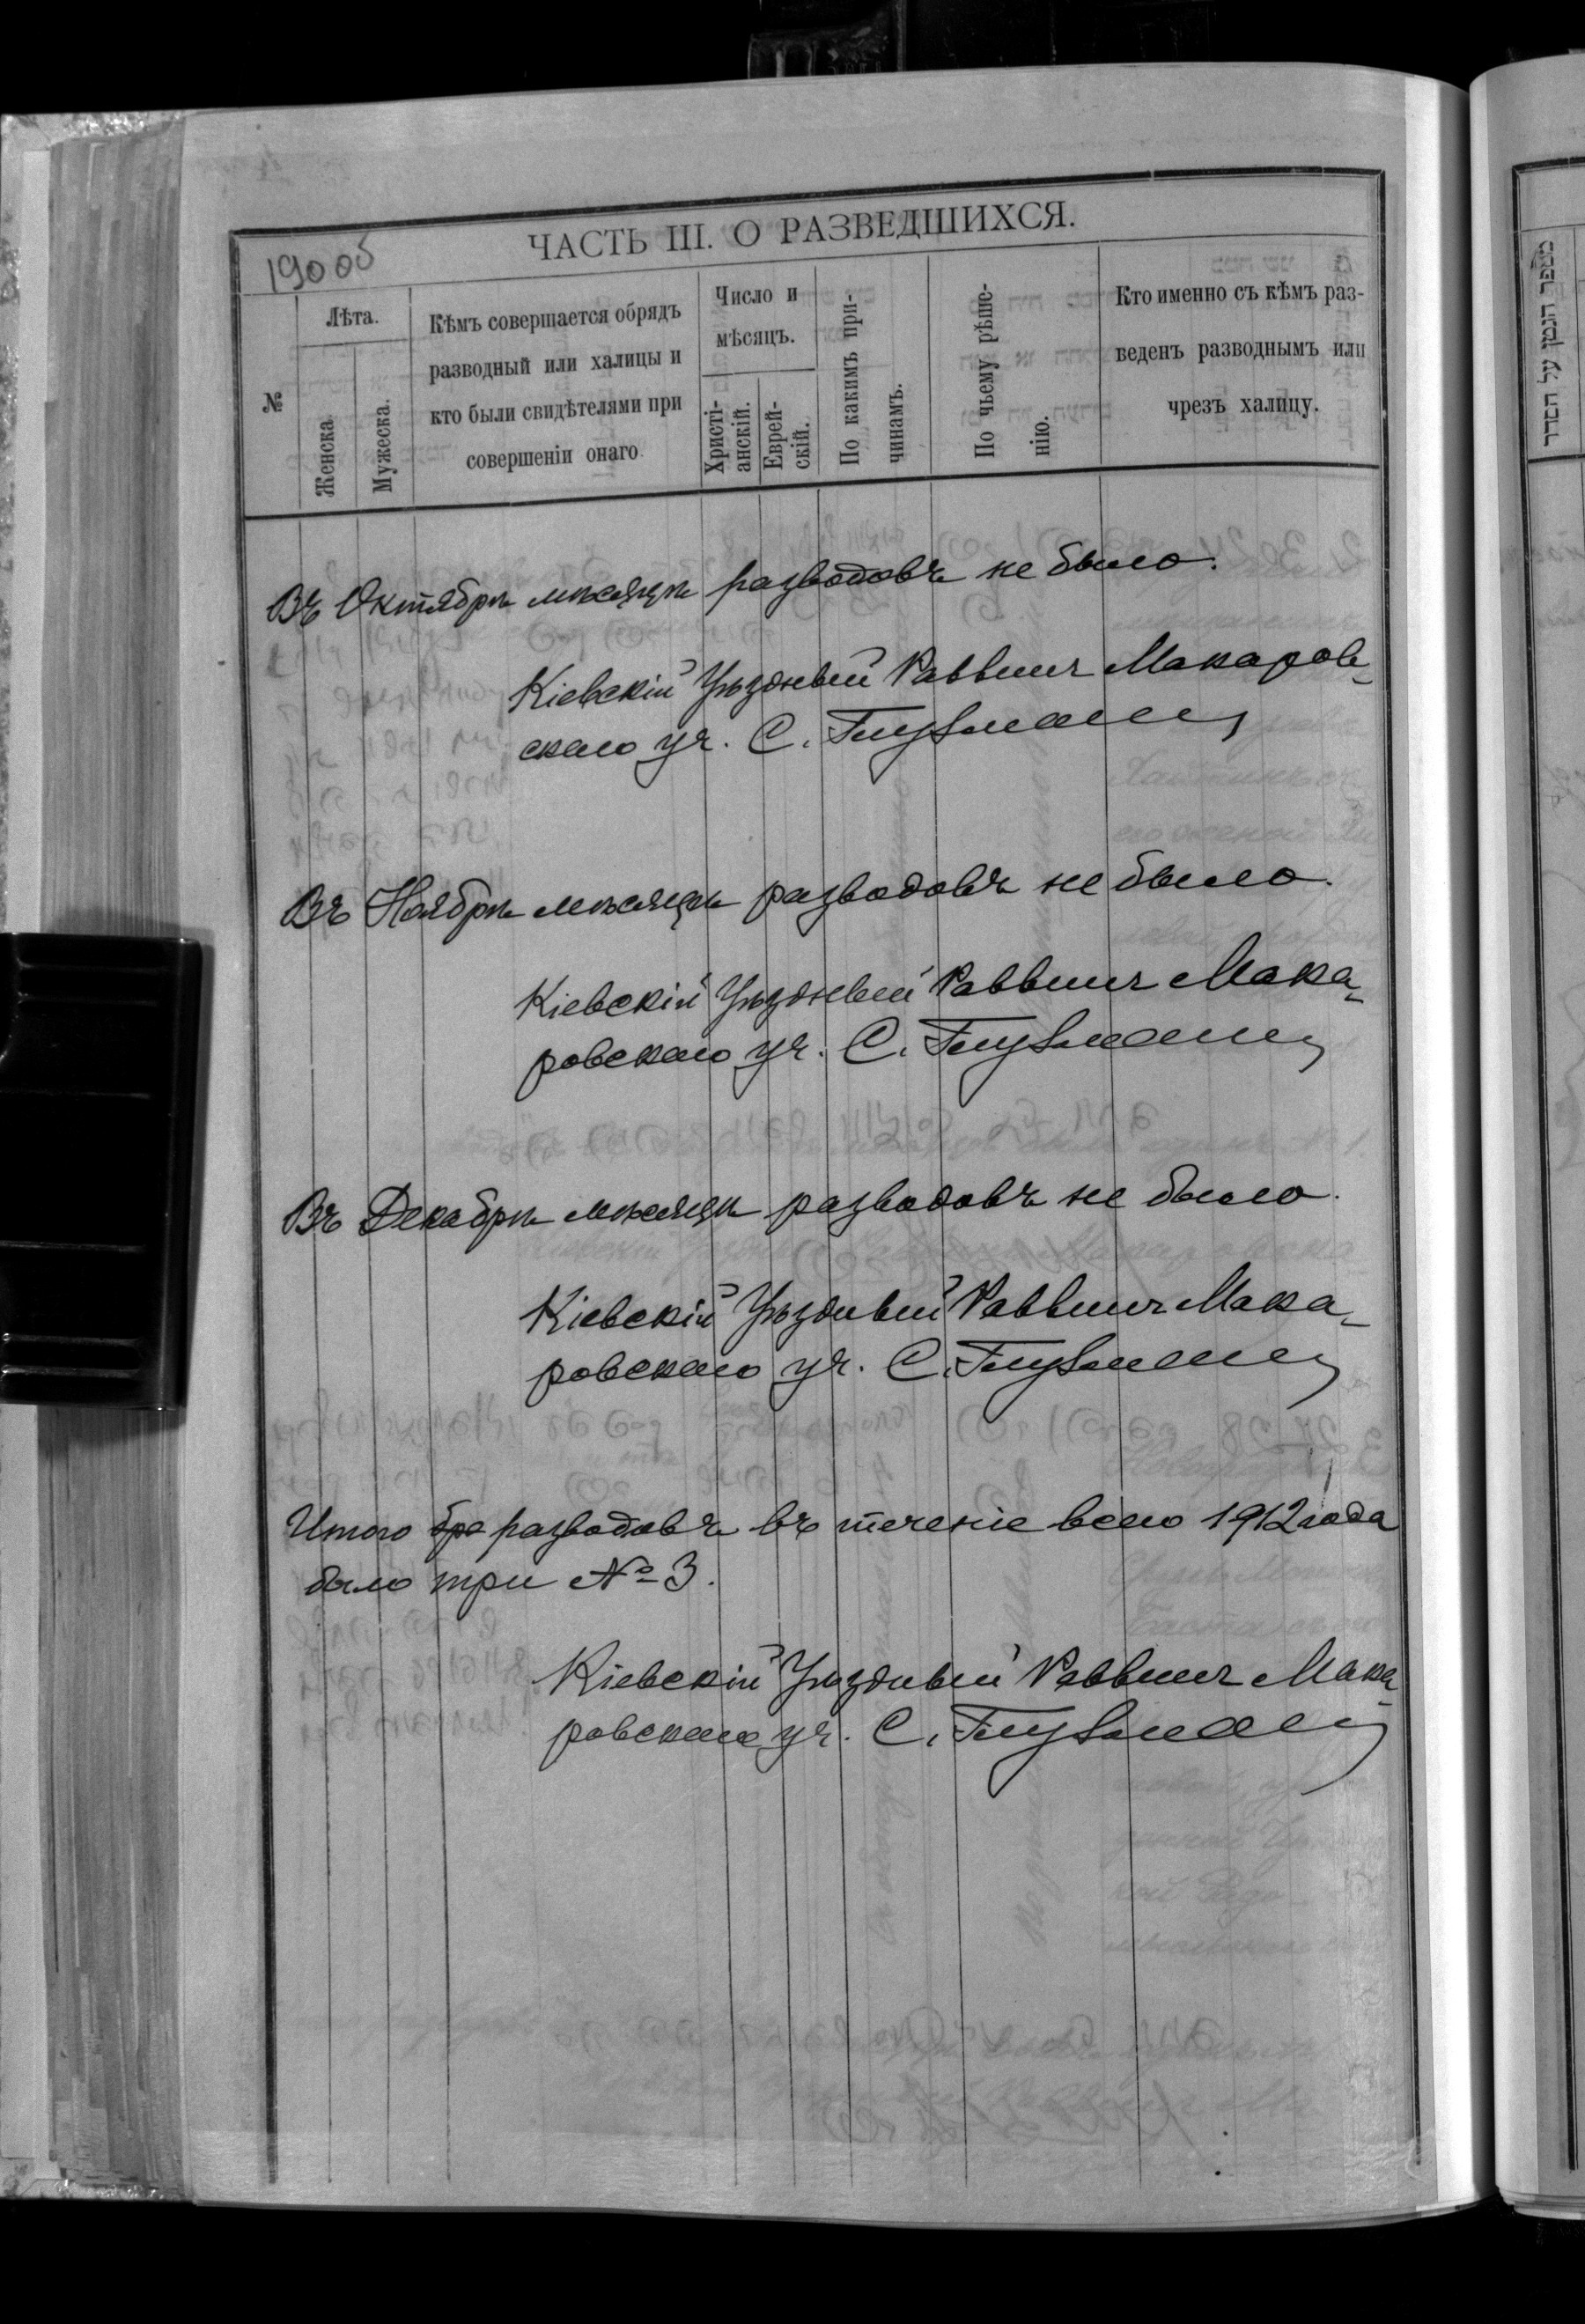 ЧАСТЬ III. О РАЗВЕДШИХСЯ.
19005
№
Лѣта.
Женска
Мужеска.
Кѣмъ совершается обрядъ
разводный или халицы и
кто были свидѣтелями при
совершеніи онаго
Число и
мѣсяцъ.
Христі-
анскій.
Еврей-
скій.
По какимъ при-
чинамъ.
По чьему рѣше-
нію.
Кто именно съ кѣмъ раз-
веденъ разводнымъ или
чрезъ халицу.
Въ Октябрѣ мѣсяцѣ разводовъ не было.
Кіевскій Уѣздный Раввинъ Макаров-
скаго уч. С. Глузманъ
Въ Ноябрѣ мѣсяцѣ разводовъ не было.
Кіевскій Уѣздный Раввинъ Мака-
ровскаго уч. С. Глузманъ
Въ Декабрѣ мѣсяцѣ разводовъ не было.
Кіевскій Уѣздный Раввинъ Мака-
ровскаго уч. С. Глузманъ
Итого бра разводовъ въ теченіе всего 1912 года
было три № 3.
Кіевскій Уѣздный Раввинъ Мака-
ровскаго уч. С. Глузманъ
מספר הנטן על הסדר